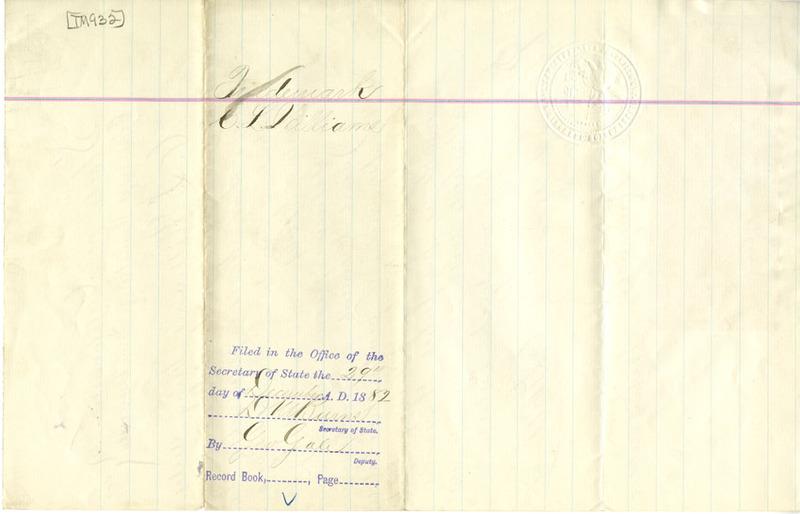 [TM932]
Trademark
C. S. Williams
Filed in the Office of the
Secretary of State the 29th
day of December A. D. 1882
Secretary of State.
By Geo Gale
Deputy.
Record Book, , Page